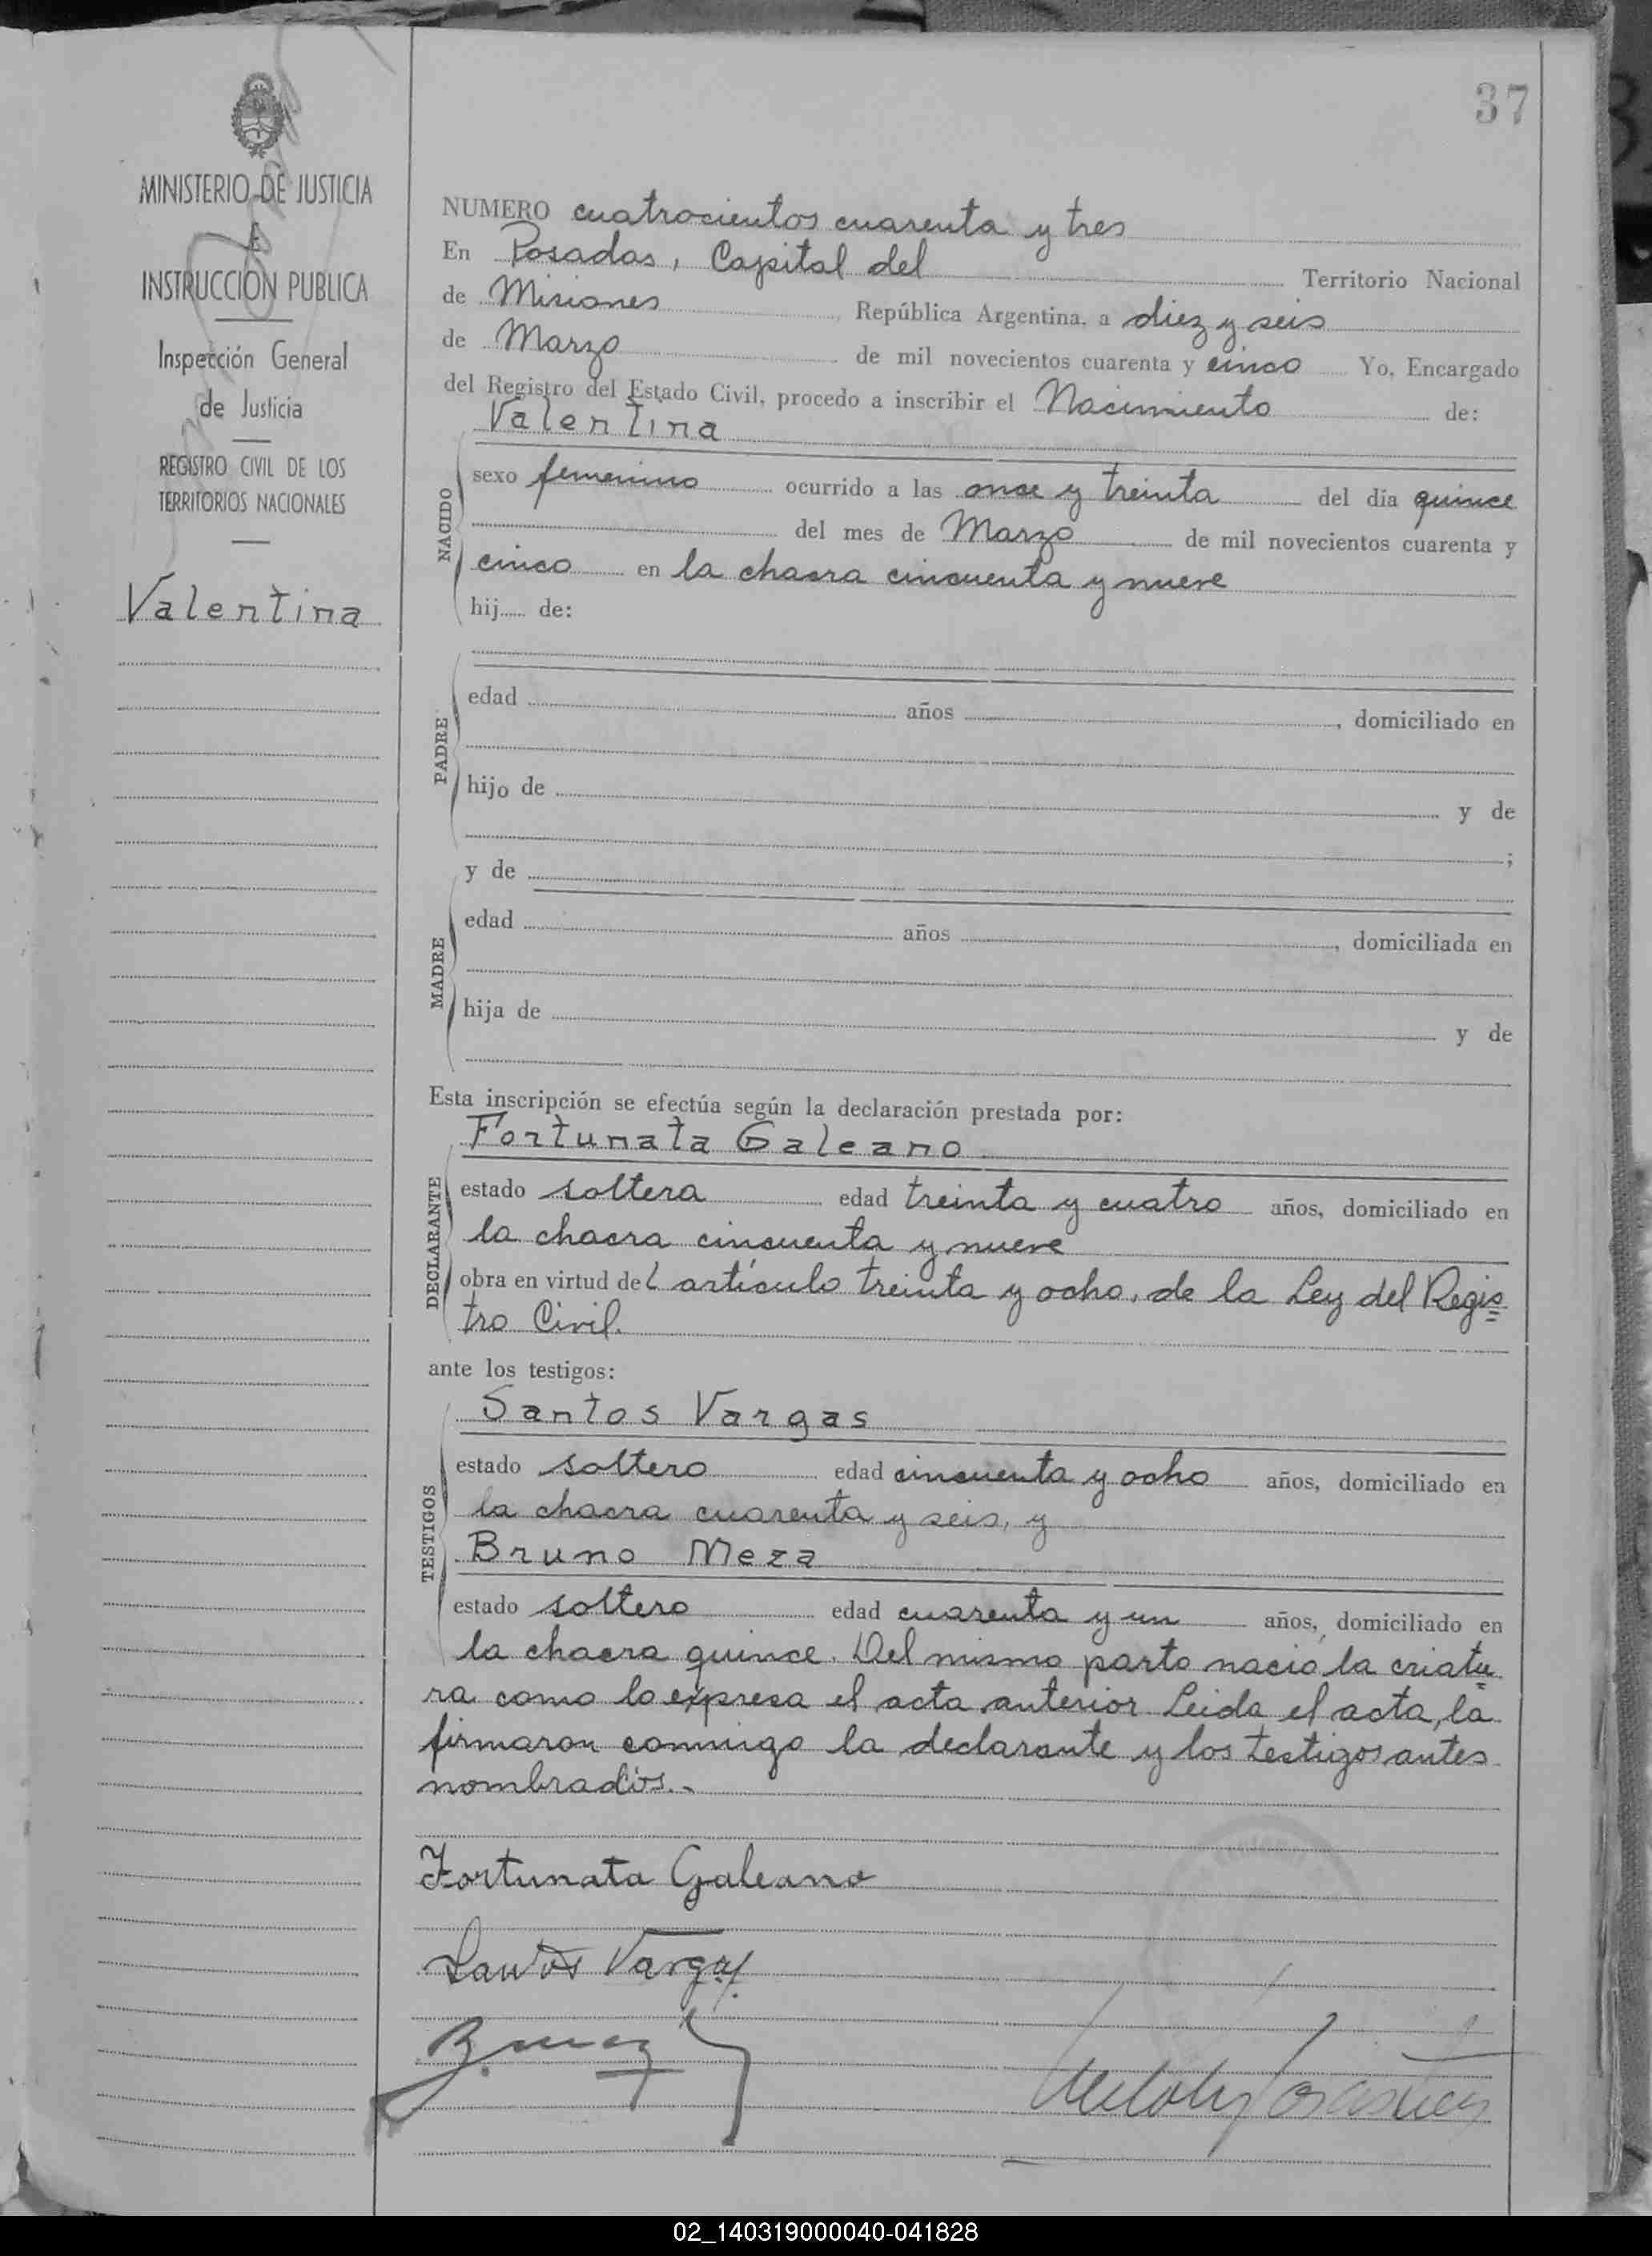 37
MINISTERIO DE JUSTICIA
E
INSTRUCCION PUBLICA
Inspección General
de Justicia
REGISTRO CIVIL DE LOS
TERRITORIOS NACIONALES
Valentina
NUMERO cuatrocientos cuarenta y tres
En Posadas, Capital del Territorio Nacional
de Misiones República Argentina, a diez y seis
de Marzo de mil novecientos cuarenta y cinco Yo, Encargado
del Registro del Estado Civil, procedo a inscribir el Nacimiento de:
Valentina
NACIDO
sexo femenino ocurrido a las once y treinta del día quince
del mes de Marzo de mil novecientos cuarenta y
cinco en la chacra cincuenta y nueve
hij de:
PADRE
edad años , domiciliado en
hijo de y de
;
y de
MADRE
edad años , domiciliada en
hija de y de
Esta inscripción se efectúa según la declaración prestada por:
Fortunata Galeano
DECLARANTE
estado soltera edad treinta y cuatro años, domiciliado en
la chacra cincuenta y nueve
obra en virtud del artículo treinta y ocho, de la Ley del Regis=
tro Civil.
ante los testigos:
Santos Vargas
TESTIGOS
estado soltero edad cincuenta y ocho años, domiciliado en
la chacra cuarenta y seis, y
Bruno Meza
estado soltero edad cuarenta y un años, domiciliado en
la chacra quince. Del mismo parto nació la criatu=
ra como lo expresa el acta anterior Leida el acta, la
firmaron conmigo la declarante y los testigos antes
nombrados.-
Fortunata Galeano
Santos Vargas
02_140319000040-041828